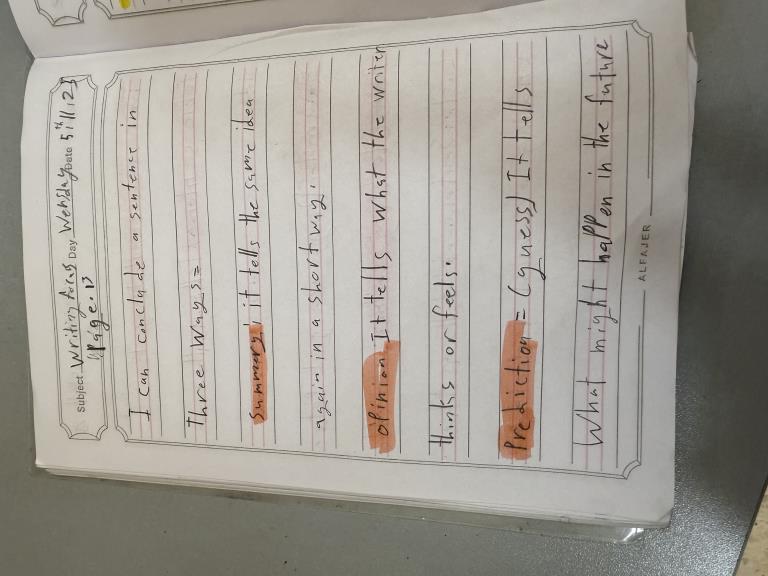 Subject Writing Day Wensday Date 5th/11/23
Page. 13
I can conclude a sentence in
three ways=
Summery: it tells the same idea
again in a short way.
opinian It tells what the writer
thinks or feels.
Prediction = (guess) It tells
What might happen in the future
ALFAJER